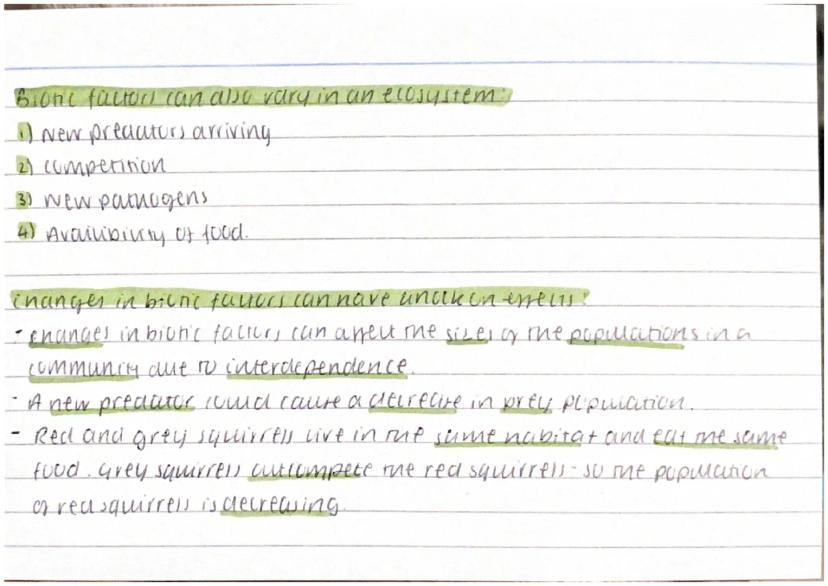 Biotic factors can also vary in an ecosystem:
1) New predators arriving
2) competition
3) New pathogens
4) Availibility of food.
Changes in biotic factors can have knock on effects:
- changes in biotic factors can affect the sizes of the populations in a
community due to interdependence.
- A new predator could cause a decrease in prey population.
- Red and grey squirrels live in the same habitat and eat the same
food. Grey squirrels outcompete the red squirrels - so the population
of red squirrels is decreasing.